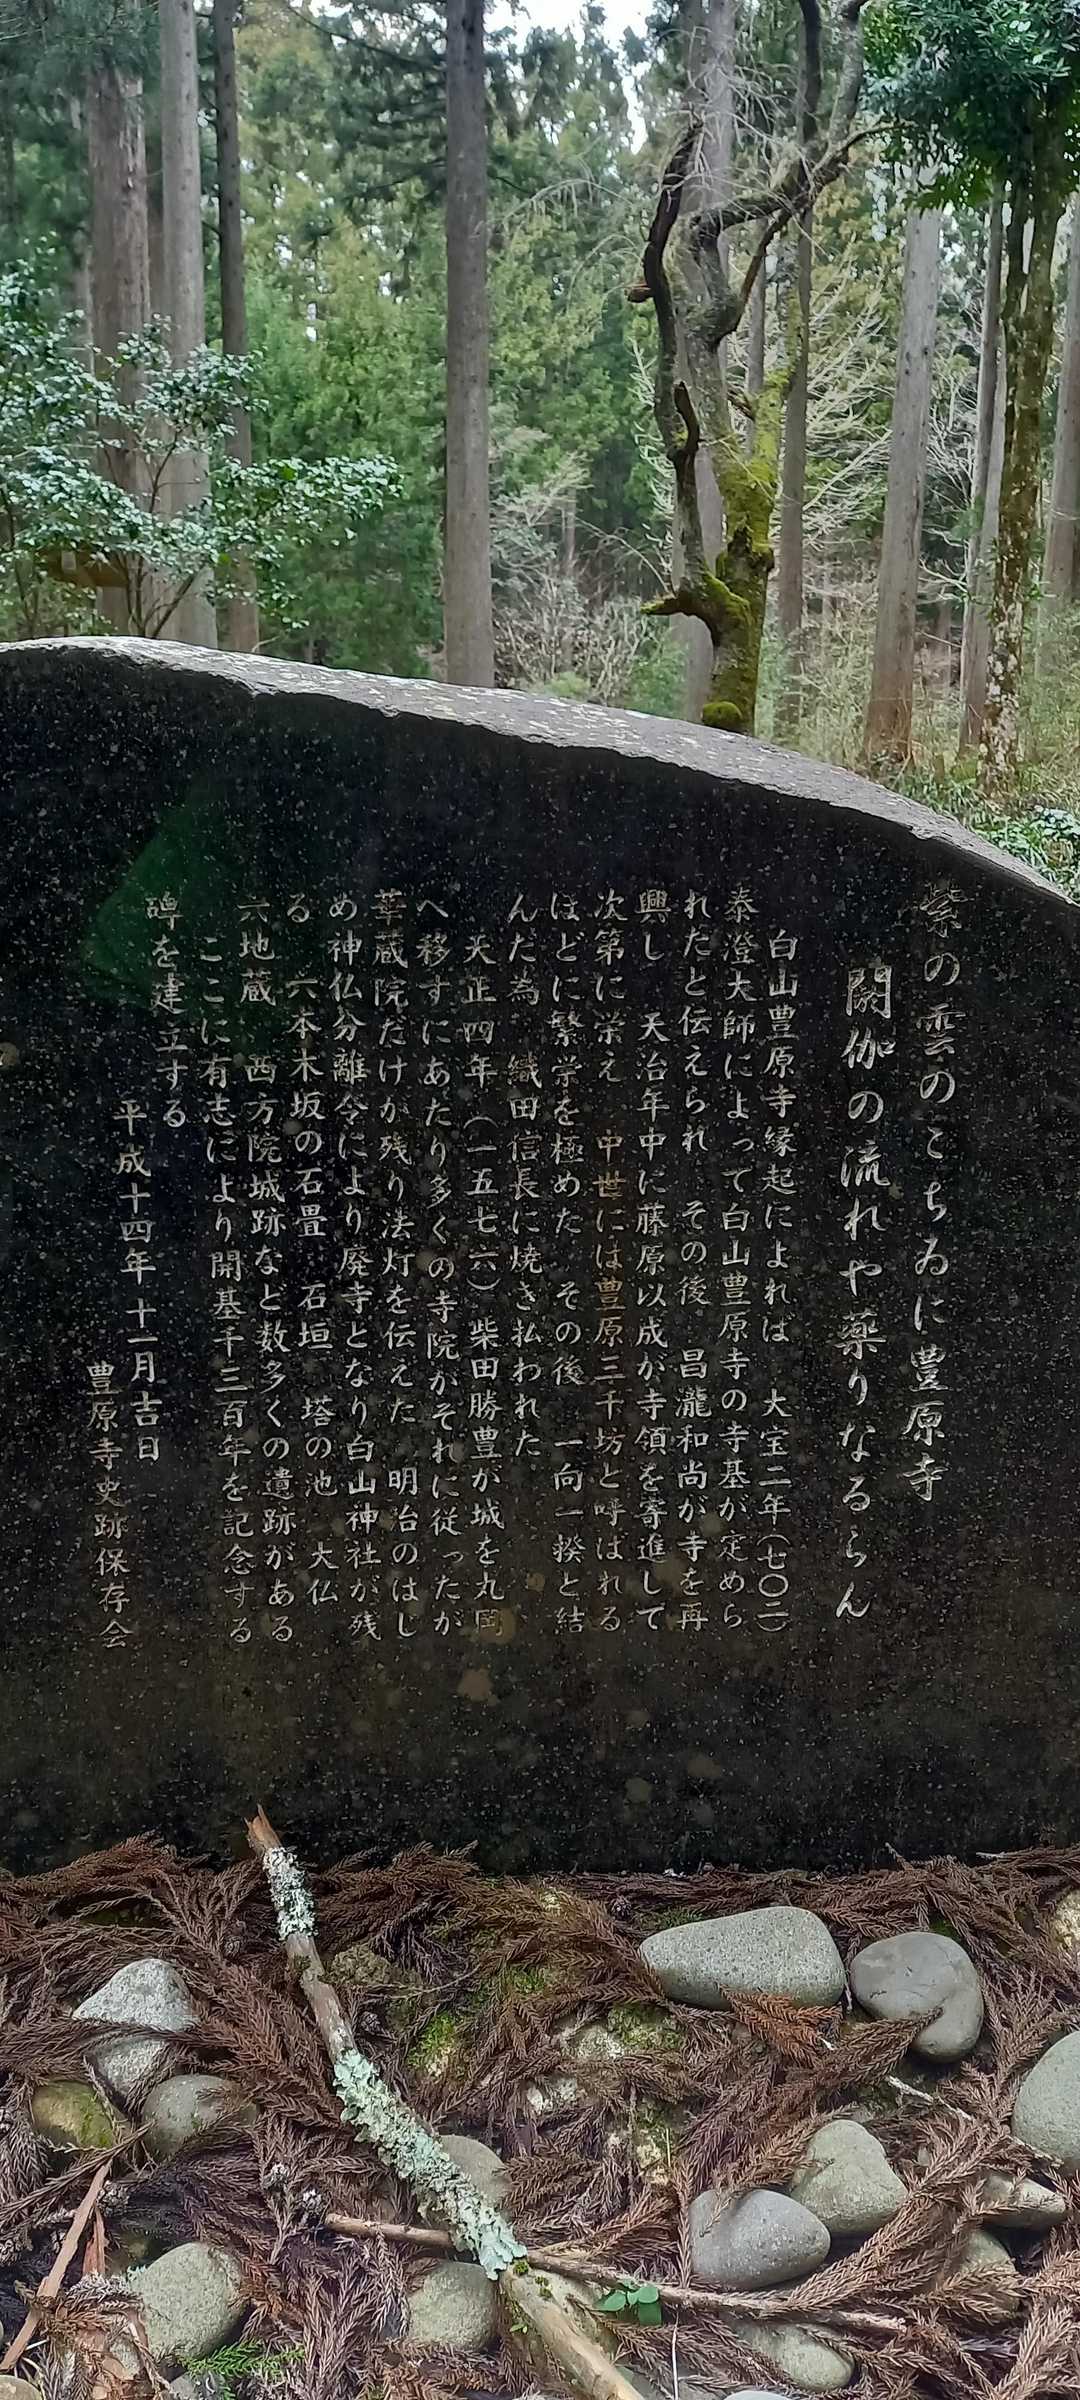 紫の雲のこちゐに豊原寺
閼伽の流れや薬りなるらん
白山豊原寺縁起によれば 大宝二年(七〇二)
泰澄大師によって白山豊原寺の寺基が定めら
れたと伝えられ その後 昌瀧和尚が寺を再
興し 天治年中に藤原以成が寺領を寄進して
次第に栄え 中世には豊原三千坊と呼ばれる
ほどに繁栄を極めた その後 一向一揆と結
んだ為 織田信長に焼き払われた
天正四年(一五七六)柴田勝豊が城を丸岡
へ移すにあたり多くの寺院がそれに従ったが
華蔵院だけが残り法灯を伝えた 明治のはじ
め神仏分離令により廃寺となり白山神社が残
る 六本木坂の石畳 石垣 塔の池 大仏
六地蔵 西方院城跡など数多くの遺跡がある
ここに有志により開基千三百年を記念する
碑を建立する
平成十四年十一月吉日
豊原寺史跡保存会